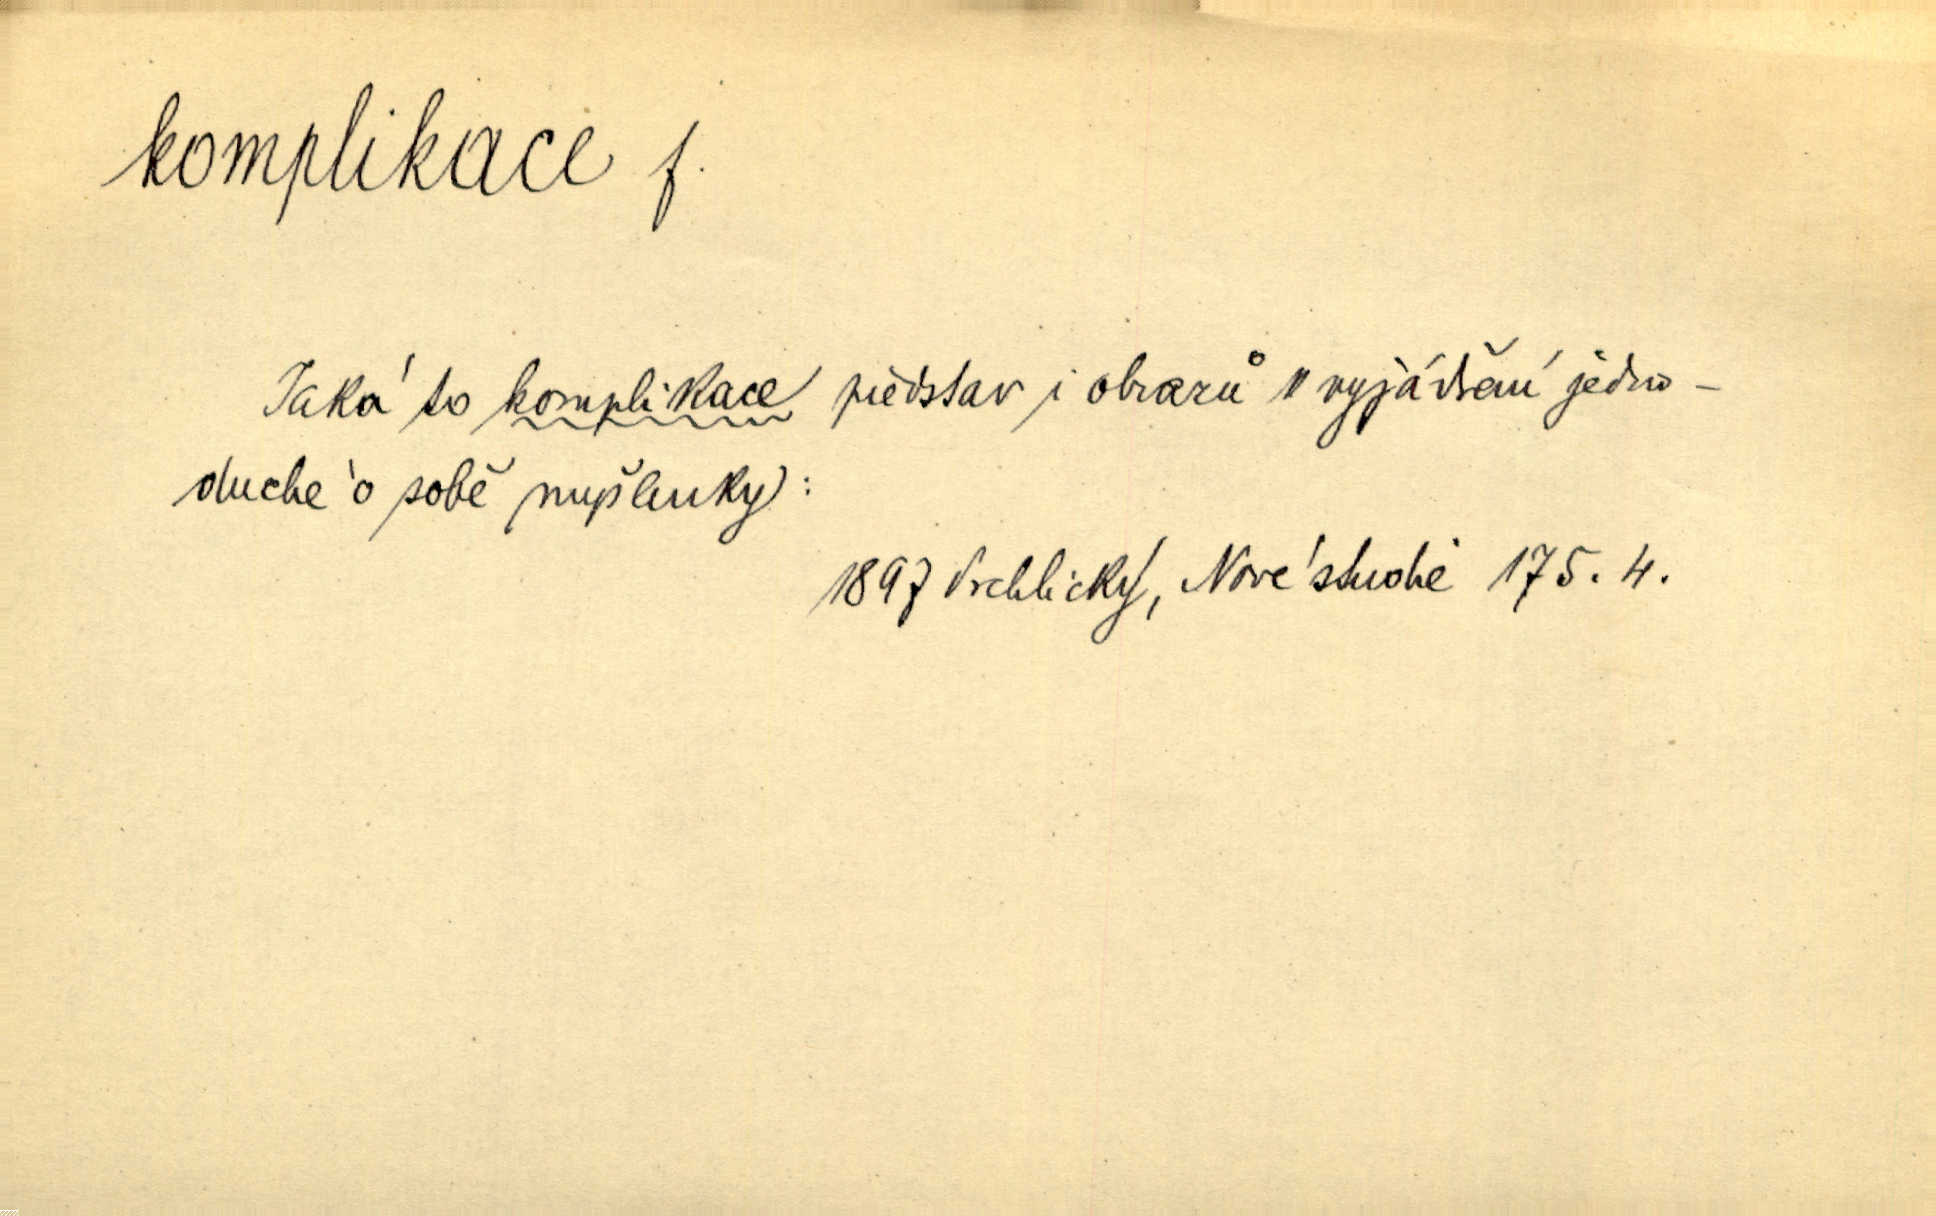 komplikace f.
Taká to komplikace představ i obrazů v vyjádření jedno-
duché o sobě myšlenky:
1897 Vrchlický, Nové studie 175. 4.